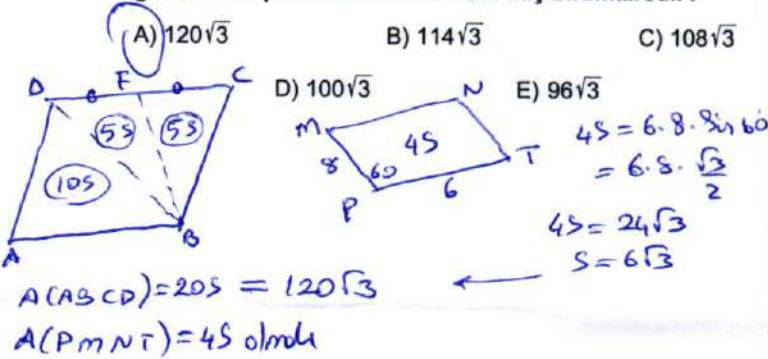 A) 120√3 B) 114√3 C) 108√3
D) 100√3 E) 96√3
D F C
5S 5S
10S
A B
M N
4S
8 60 T
P 6
4S = 6.8. Sin 60
= 6.8. √3/2
4S = 24√3
S = 6√3
A(ABCD) = 20S = 120√3 ←
A(PMNT) = 4S olmak